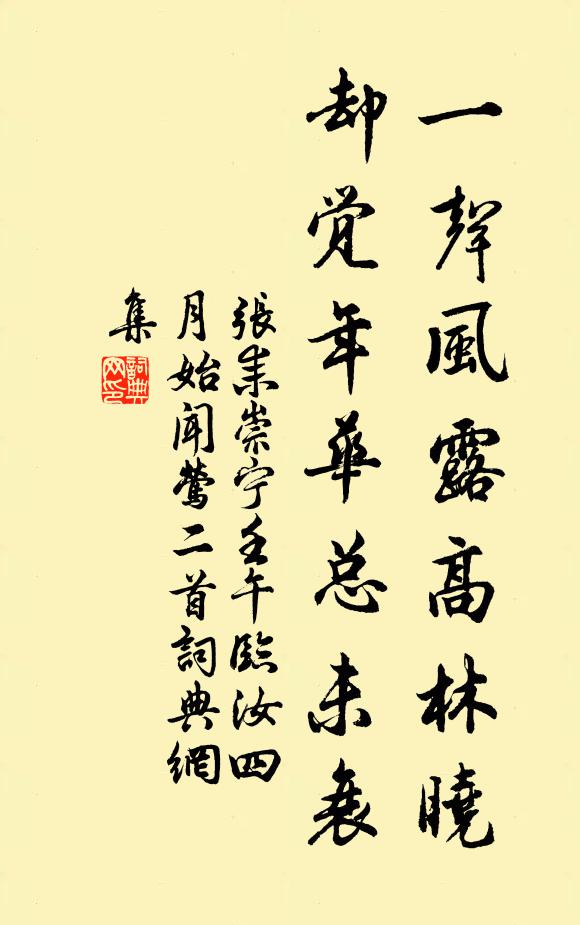 一聲風露高林曉
却覚年華总未衰
張耒崇宁壬午臨汝四
月始闻鶯二首詞典網
集
詞典
网印